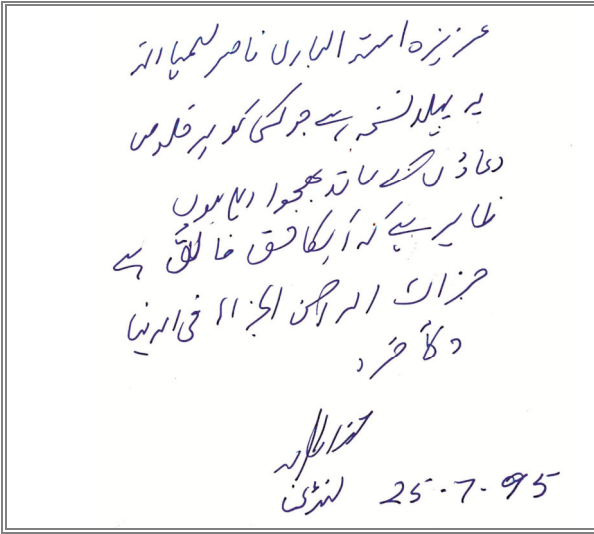 عزیزہ امتہ الباری ناصر سلمہا اللہ
یہ پہلا نسخہ ہے جو کسی کو پر خلوص
دعاؤں کے ساتھ بھجوا رہا ہوں
ظاہر ہے کہ آپکا حق فائق ہے
جزاک اللہ احسن الجزاء فی الدنیا
والآخرہ
لندن 25.7.95